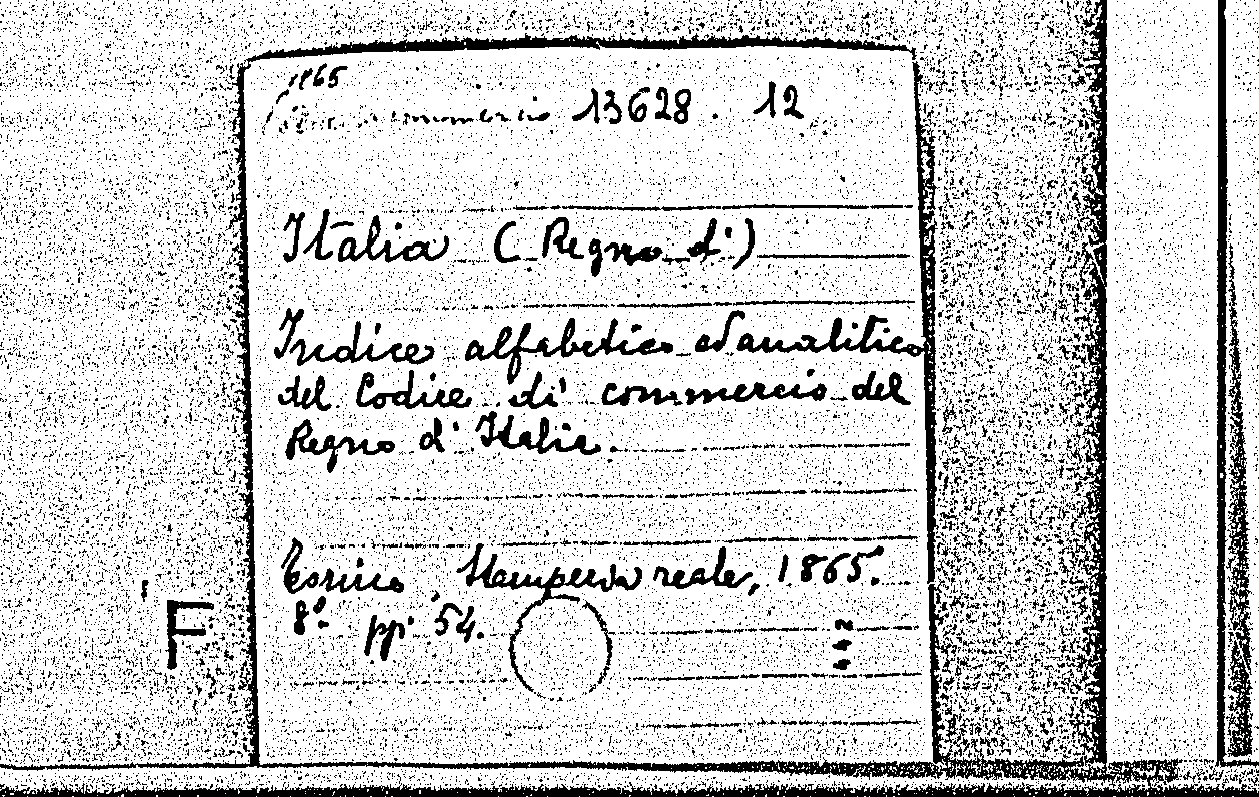 1865
commercio 13628 . 12
Italia ( Regno d')
Indice alfabetico ed analitico
del Codice di commercio del
Regno d' Italia.
Torino Stamperia reale, 1865.
8º pp. 54.
F